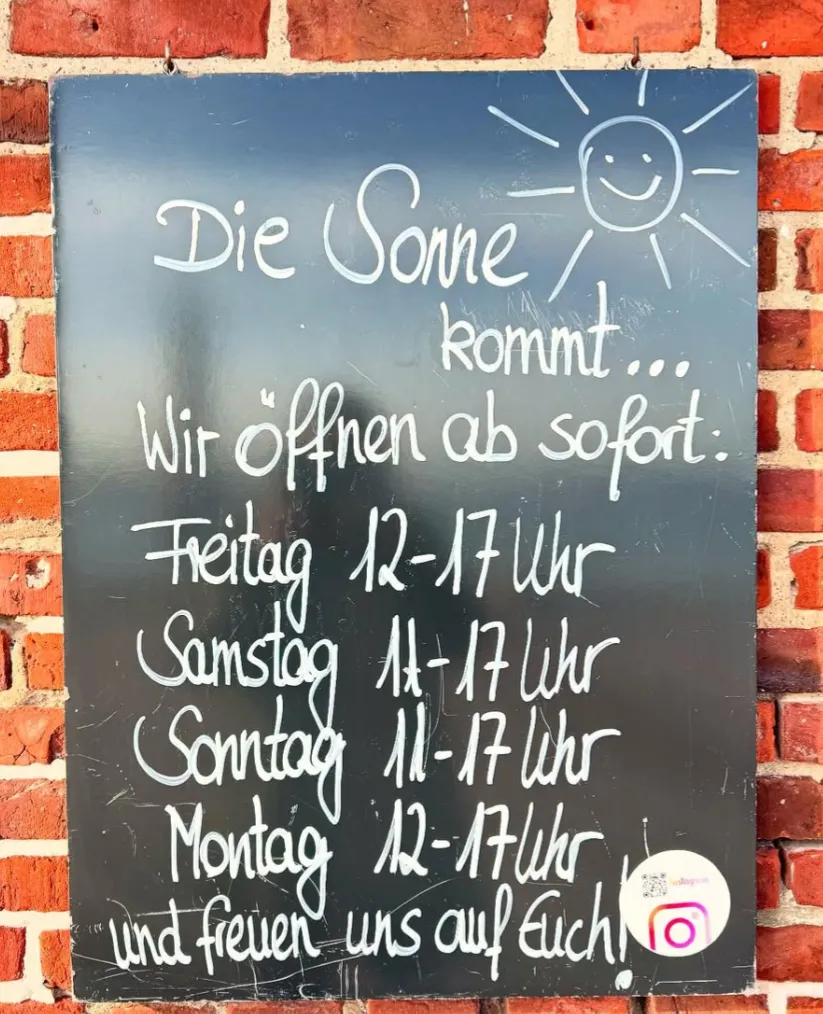 Die Sonne
kommt...
Wir öffnen ab sofort:
Freitag 12-17 Uhr
Samstag 11-17 Uhr
Sonntag 11-17 Uhr
Montag 12-17 Uhr
und freuen uns auf Euch!
Instagram